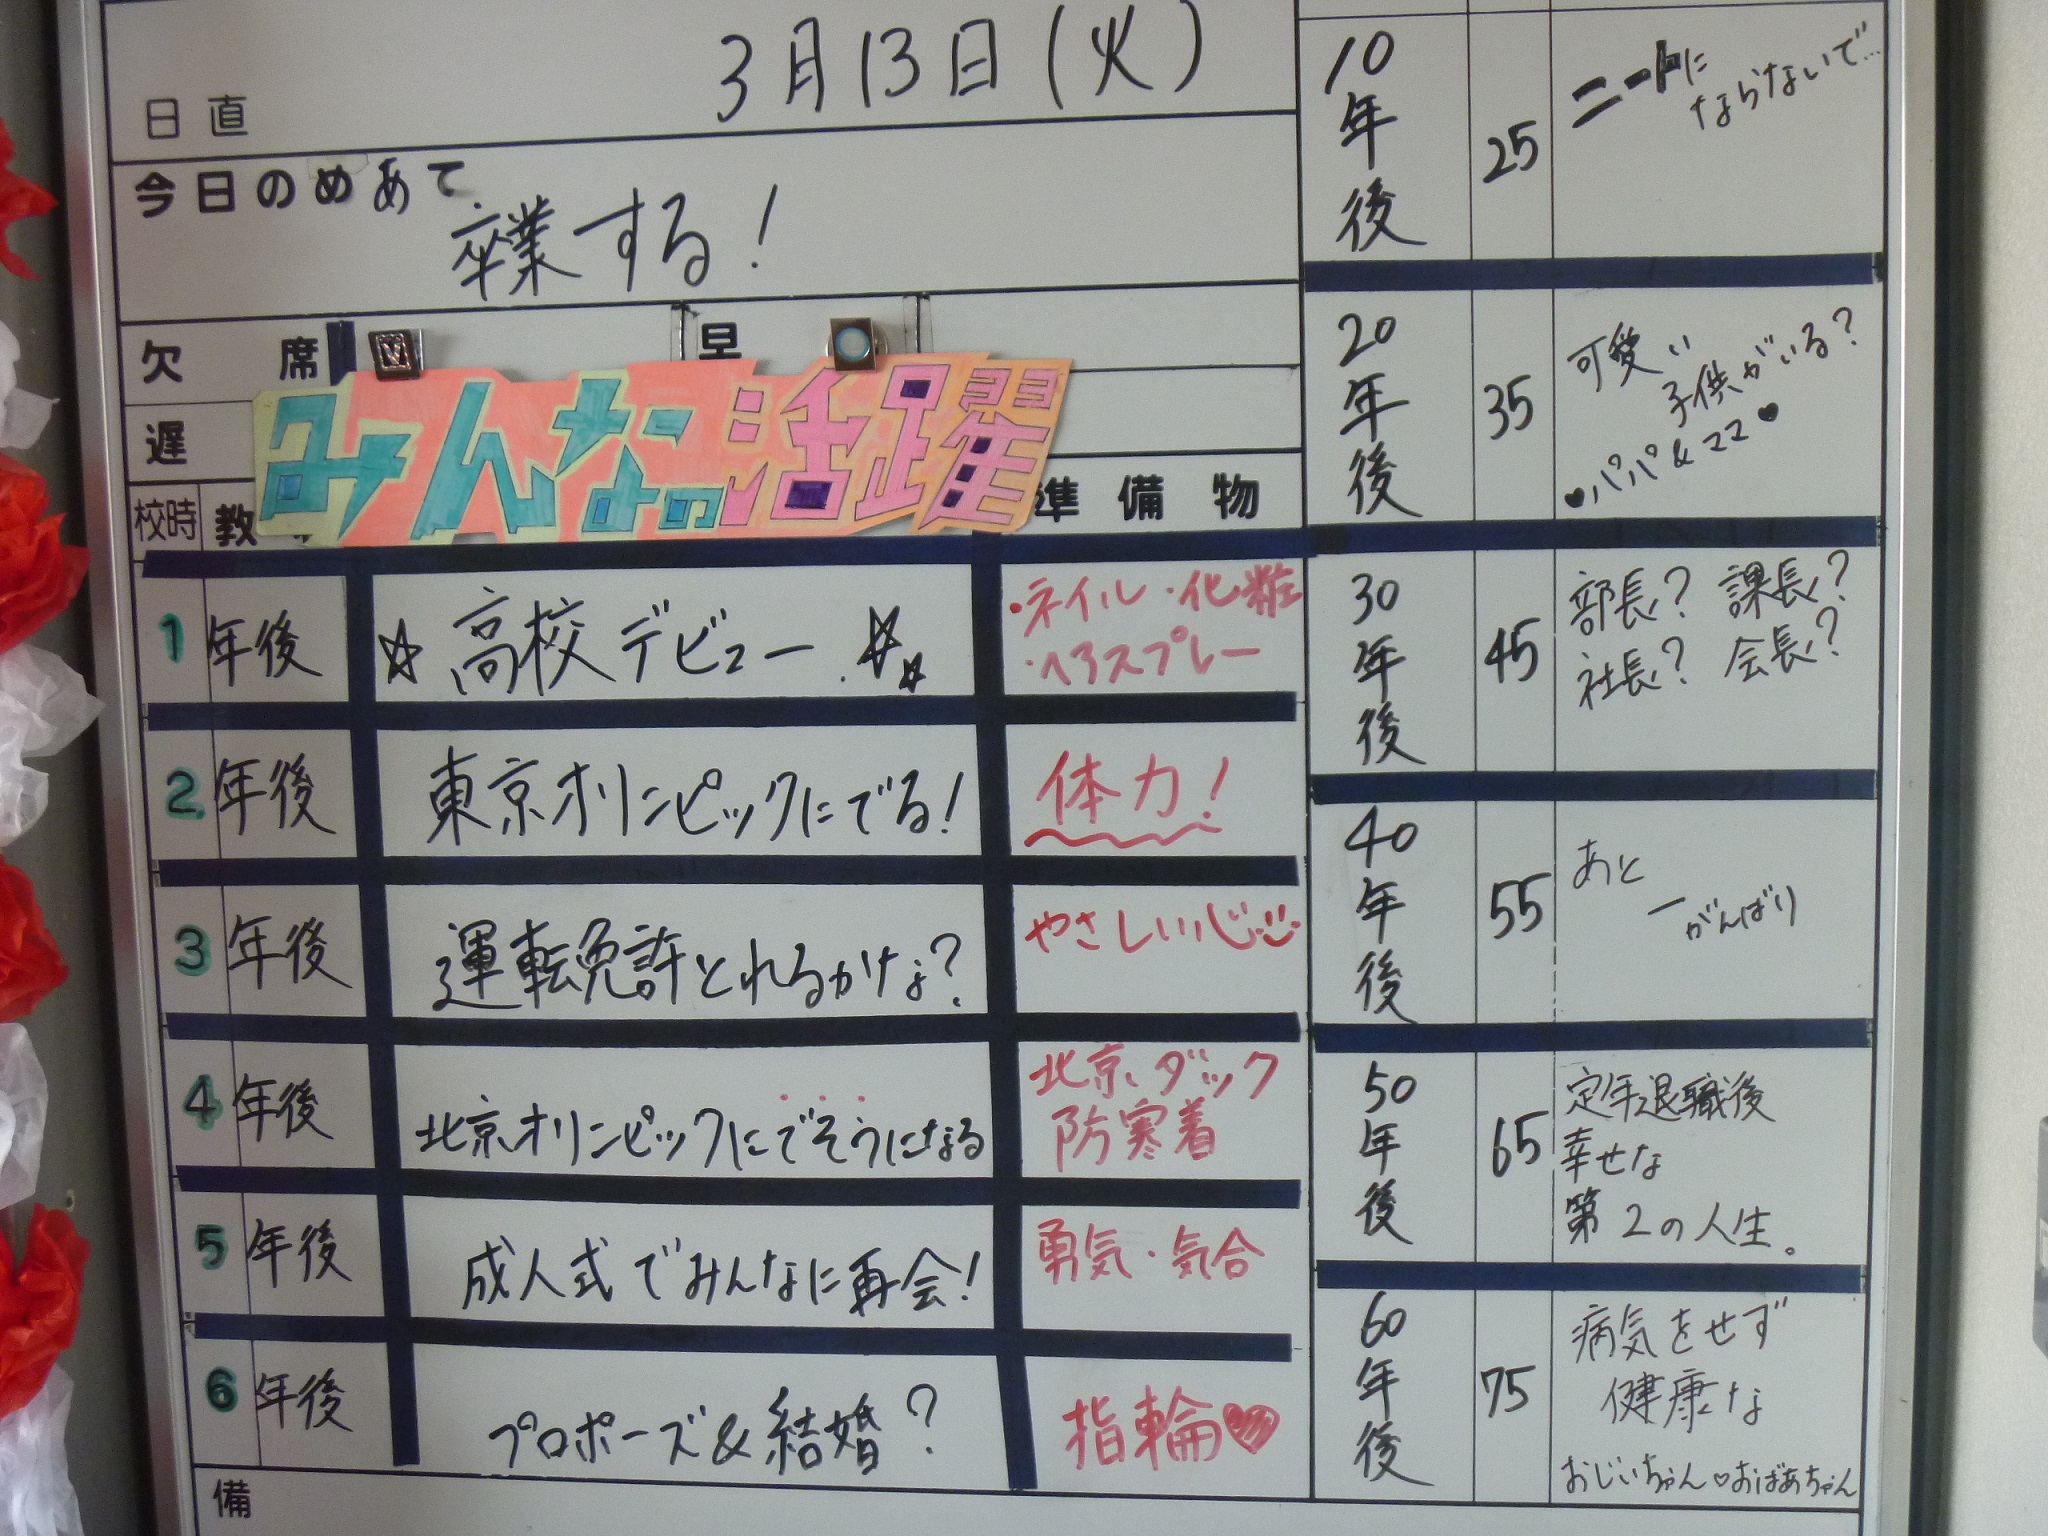 3月13日(火)
日直
今日のめあて
卒業する!
欠席
早
遅
みんなの活躍
校時 教 準備物
1年後 ☆高校デビュー.☆☆ ・ネイル・化粧
・ヘアスプレー
2年後 東京オリンピックにでる! 体力!
3年後 運転免許とれるかな? やさしい心
4年後 北京オリンピックにでそうになる 北京ダック
防寒着
5年後 成人式でみんなに再会! 勇気・気合
6年後 プロポーズ&結婚? 指輪♥
備
10年後 25 ニートに
ならないで…
20年後 35 可愛い
子供がいる?
♥パパ&ママ♥
30年後 45 部長? 課長?
社長? 会長?
40年後 55 あと
一がんばり
50年後 65 定年退職後
幸せな
第2の人生。
60年後 75 病気をせず
健康な
おじいちゃん♡おばあちゃん